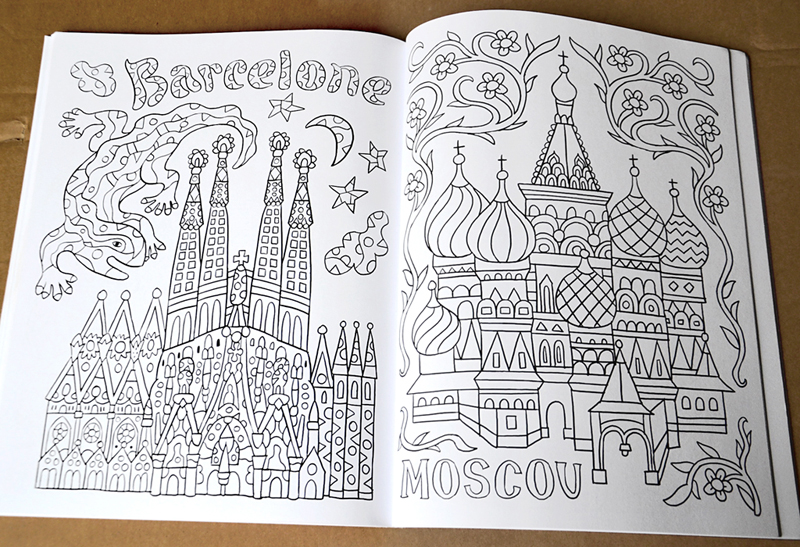 Barcelone
MOSCOU